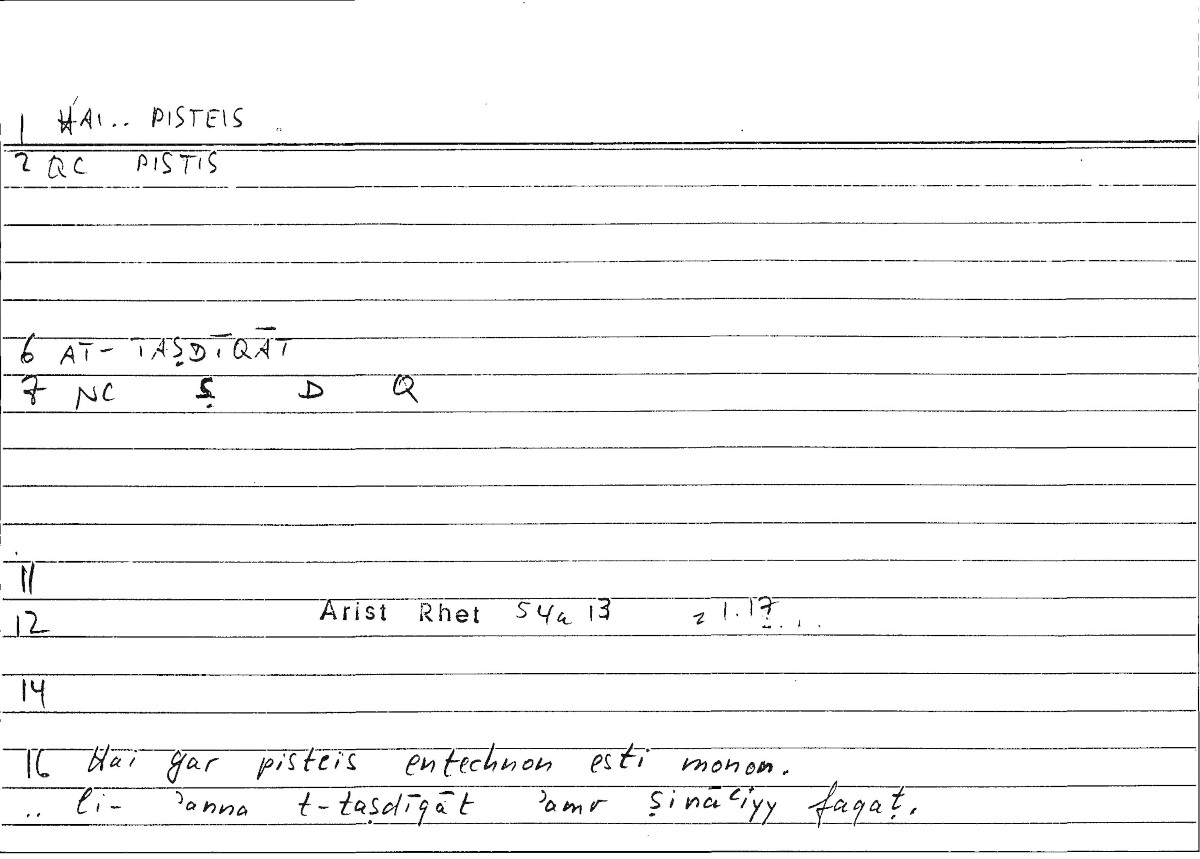 1 HAI.. PISTEIS
2 QC PISTIS
6 AT- TAṢDĪQĀT
7 NC Ṣ D Q
11
12 Arist Rhet 54a 13 = 1.17
14
16 Hai gar pisteis entechnon esti monon.
.. li- ʾanna t-taṣdīqāt ʾamr ṣināʿiyy faqaṭ.